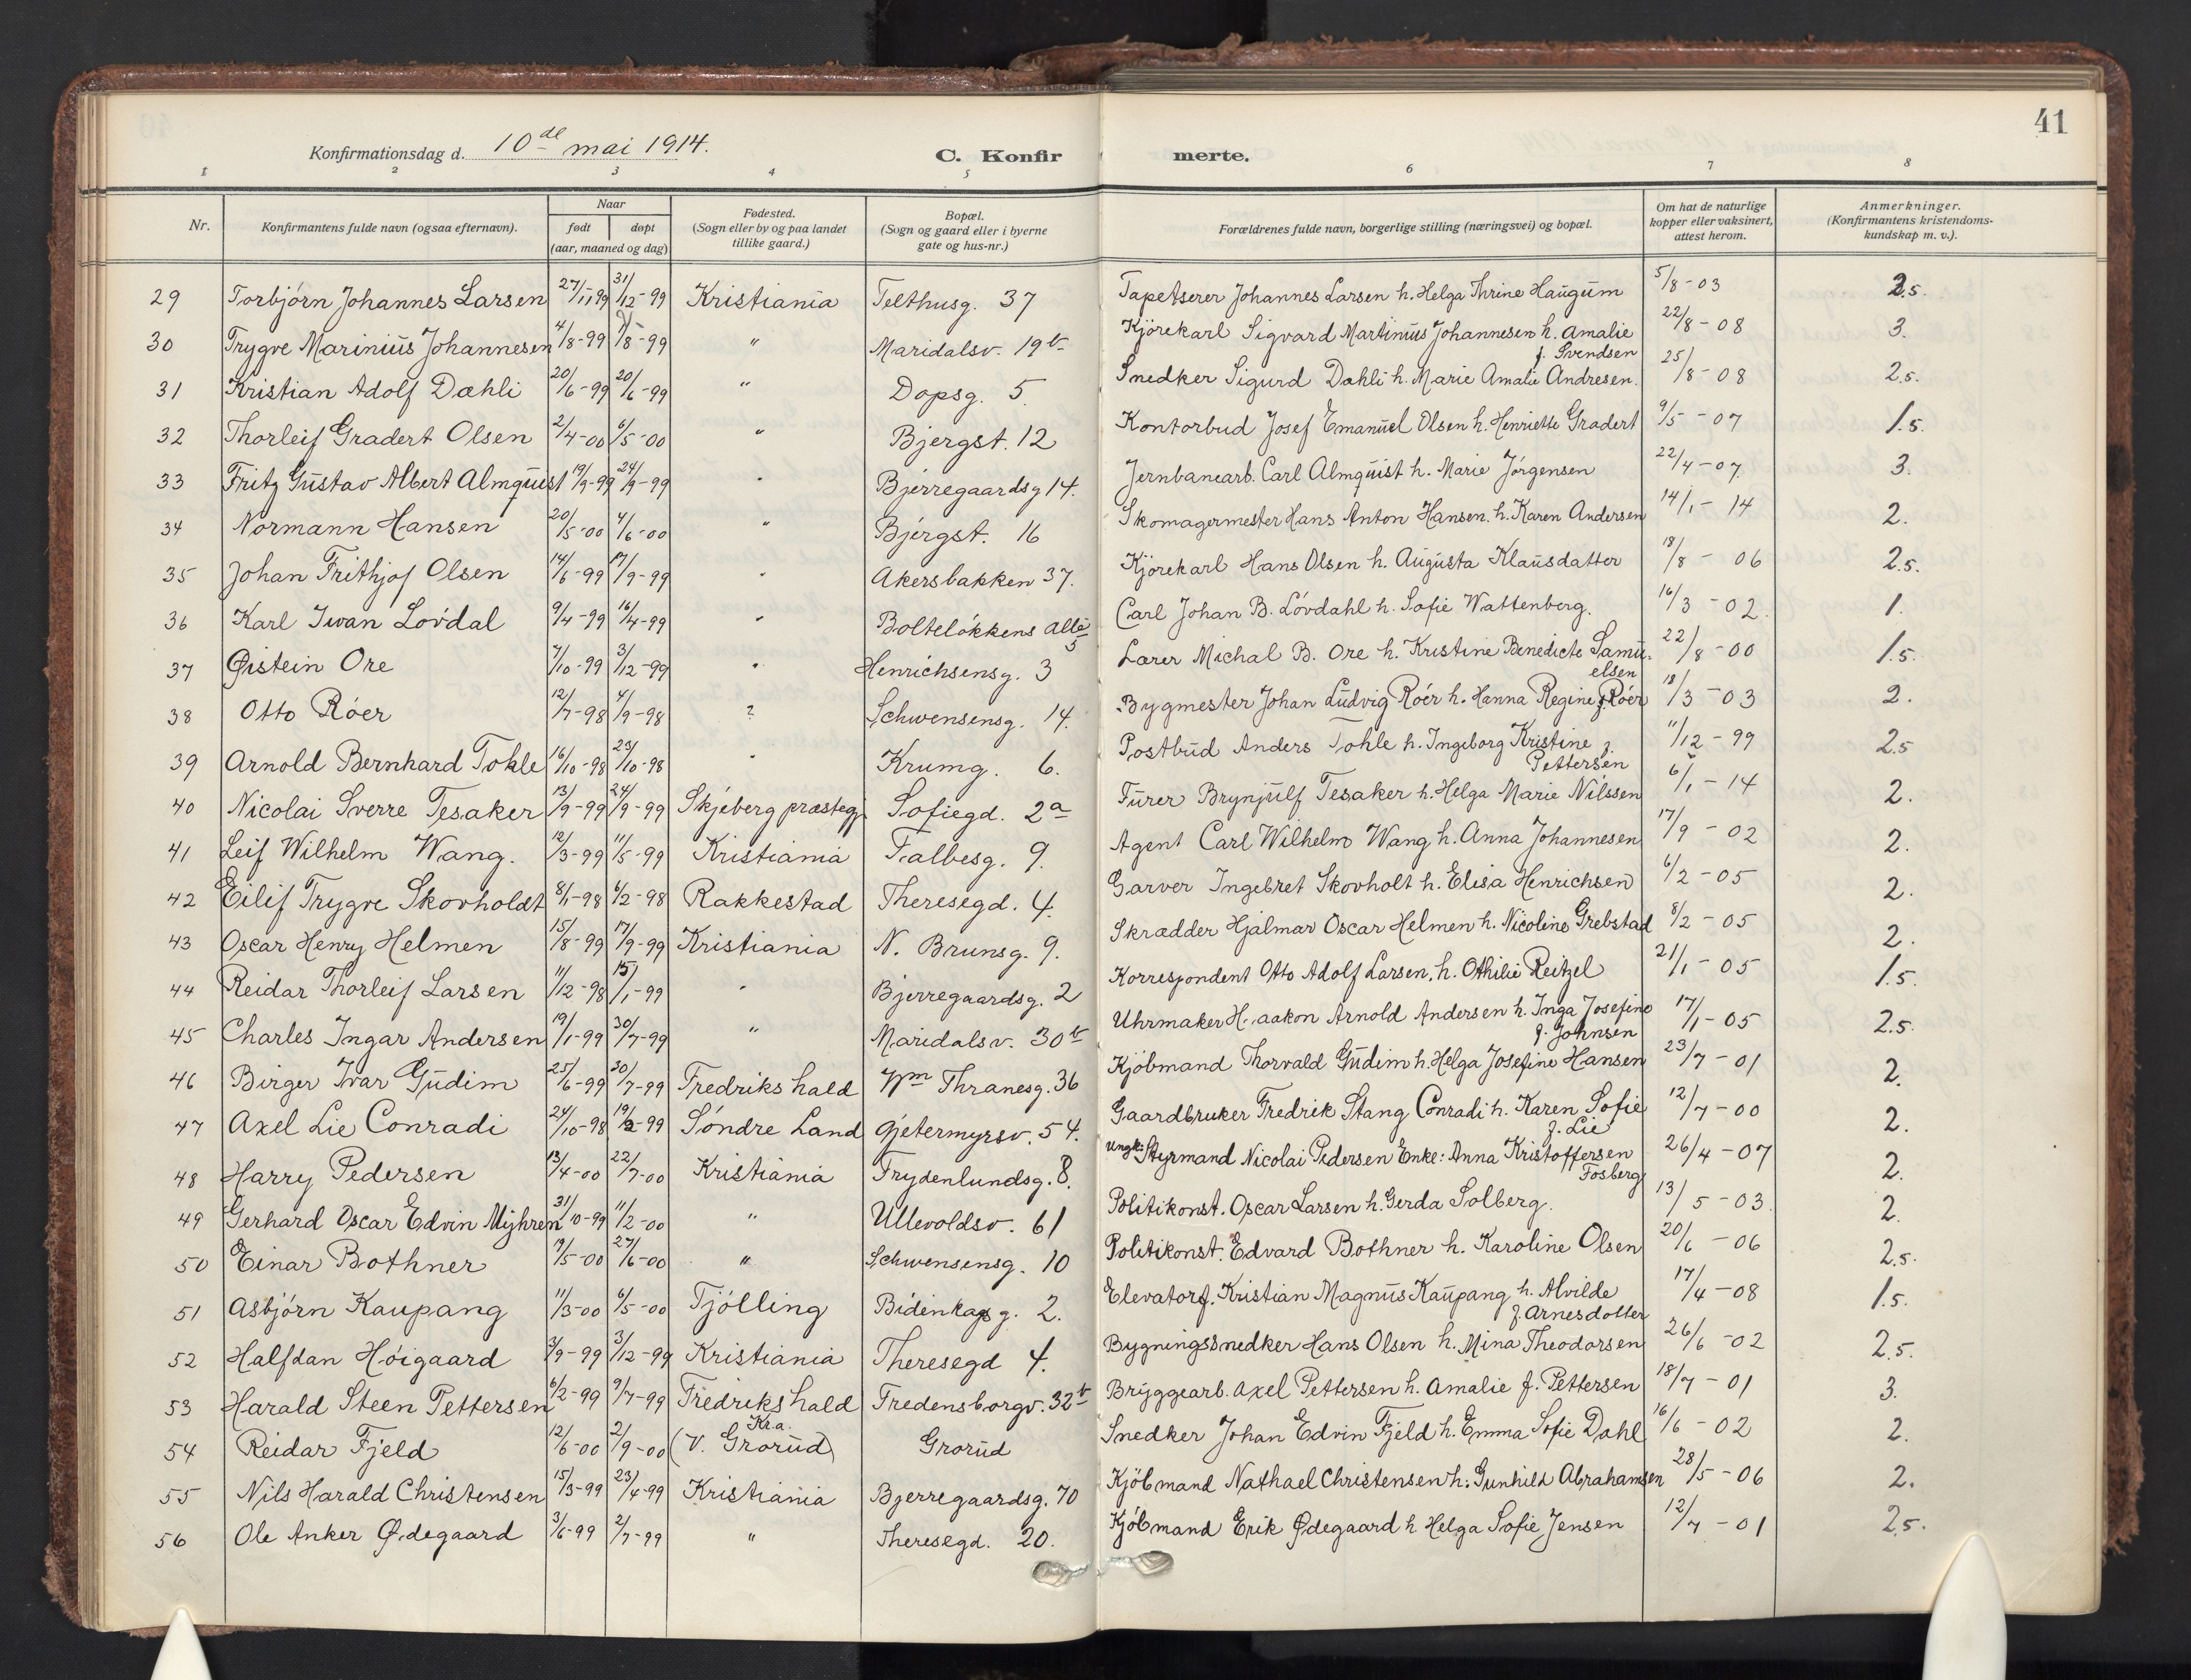 41
Konfirmationsdag d. 10de mai 1914. C. Konfir merte.
1 2 3 4 5 6 7 8
Nr. Konfirmantens fulde navn (ogsaa efternavn). Naar født døpt (aar, maaned og dag) Fødested. (Sogn eller by og paa landet tillike gaard.) Bopæl. (Sogn og gaard eller i byerne gate og hus-nr.) Forældrenes fulde navn, borgerlige stilling (næringsvei) og bopæl. Om hat de naturlige kopper eller vaksinert, attest herom. Anmerkninger. (Konfirmantens kristendoms-kundskap m. v.).
29 Torbjørn Johannes Larsen 27/11 99 31/12-99 Kristiania Telthusg. 37 Tapetserer Johannes Larsen h. Helga Thrine Haugum 5/8-03 2.5.
30 Trygve Marinius Johannesen 4/8-99 /8-99 " Maridalsv. 19b Kjørekarl Sigvard Martinius Johannesen h. Amalie f. Svendsen 22/8-08 3.
31 Kristian Adolf Dæhli 20/6-99 20/6-99 " Dopsg. 5. Snedker Sigurd Dæhli h. Marie Amalie Andresen. 25/8-08 2.5.
32 Thorleif Gradert Olsen 2/4-00 6/5-00 " Bjergst. 12 Kontorbud Josef Emanuel Olsen h. Henriette Gradert 9/5-07 1.5.
33 Fritz Gustav Albert Almquist 19/9-99 24/9-99 " Bjerregaardsg 14. Jernbanearb. Carl Almquist h. Marie Jørgensen 22/4-07. 3.
34 Normann Hansen 20/5-00 4/6-00 " Bjergst. 16 Skomagermester Hans Anton Hansen. h. Karen Andersen 14/1-14 2.
35 Johan Frithjof Olsen 14/6-99 17/9-99 " Akersbakken 37. Kjørekarl Hans Olsen h. Augusta Klausdatter 18/8-06 2.5.
36 Karl Iwan Løvdal 9/4-99 16/4-99 " Bolteløkkens allé 5 Carl Johan B. Løvdahl h. Sofie Wattenberg. 16/3-02. 1.
37 Øistein Ore 7/10-99 3/12-99 " Henrichsensg. 3 Lærer Michal B. Ore h. Kristine Benedicte Samuelsen 22/8-00 1.5.
38 Otto Röer 12/7-98 4/9-98 ? Schwensensg. 14. Bygmester Johan Ludvig Röer h. Hanna Regine f. Röer 18/3-03 2.
39 Arnold Bernhard Tokle 16/10-98 23/10-98 " Krumg. 6. Postbud Anders Tohle h. Ingeborg Kristine f. Pettersen 11/12-99 2.5
40 Nicolai Sverre Tesaker 13/9-99 24/9-99 Skjeberg præstegj. Sofiegd. 2a Furer Brynjulf Tesaker h. Helga Marie Nilssen 6/1-14 2.
41 Leif Wilhelm Wang. 12/3-99 11/5-99 Kristiania Falbesg. 9. Agent Carl Wilhelm Wang h. Anna Johannesen 17/9-02 2.
42 Eilif Trygve Skovholdt 8/1-98 6/2-98 Rakkestad Theresegd. 4. Garver Ingebret Skovholt h. Elisa Henrichsen 6/2-05 2.
43 Oscar Henry Helmen 15/8-99 17/9-99 Kristiania N. Brunsg. 9. Skrædder Hjalmar Oscar Helmen h. Nicoline Grebstad 8/2-05 2.
44 Reidar Thorleif Larsen 11/12-98 15/1-99 " Bjerregaardsg. 2 Korrespondent Otto Adolf Larsen, h. Othilie Reitzel 21/1-05 1.5.
45 Charles Ingar Andersen 19/1-99 30/7-99 " Maridalsv. 30b Uhrmaker Haakon Arnold Andersen h. Inga Josefine f. Johnsen 17/1-05 2.5.
46 Birger Ivar Gudim 25/6-99 30/7-99 Fredrikshald Wm Thranesg. 36 Kjøbmand Thorvald Gudim h. Helga Josefine Hansen 23/7-01 2.
47 Axel Lie Conradi 24/10-98 19/2-99 Søndre Land Gjetermyrsv. 54. Gaardbruker Fredrik Stang Conradi h. Karen Sofie f. Lie 12/7-00 2.
48 Harry Pedersen 13/4-00 22/7-00 Kristiania Frydenlundsg. 8. Ungk: Styrmand Nicolai Pedersen Enke: Anna Kristoffersen Fosberg 26/4-07 2.
49 Gerhard Oscar Edvin Myhren 31/10-99 11/2-00 " Ullevoldsv. 61 Politikonst. Oscar Larsen h. Gerda Solberg. 13/5-03. 2.
50 Einar Bothner 19/5-00 27/6-00 " Schwensensg. 10 Politikonst. Edvard Bothner h. Karoline Olsen 20/6-06 2.5.
51 Asbjørn Kaupang 11/3-00 6/5-00 Tjølling Bidenkapsg. 2. Elevatorf. Kristian Magnus Kaupang h. Alvilde f. Arnesdotter 17/4-08 1.5.
52 Halfdan Høigaard 3/9-99 3/12-99 Kristiania Theresegd 4. Bygningssnedker Hans Olsen h. Mina Theodorsen 26/6-02 2.5.
53 Harald Steen Pettersen 6/2-99 9/7-99 Fredrikshald Fredensborgv. 32b Bryggearb. Axel Pettersen h. Amalie f. Pettersen 18/7-01 3.
54 Reidar Fjeld 12/6-00 2/9-00 Kra. (V. Grorud) Grorud Snedker Johan Edvin Fjeld h. Emma Sofie Dahl 16/6-02 2.
55 Nils Harald Christensen 15/3-99 23/4-99 Kristiania Bjerregaardsg. 70 Kjøbmand Nathael Christensen h: Gunhild Abrahamsen 28/5-06 2.
56 Ole Anker Ødegaard 3/6-99 2/7-99 " Theresegd. 20. Kjøbmand Erik Ødegaard h Helga Sofie Jensen 12/7-01 2.5.